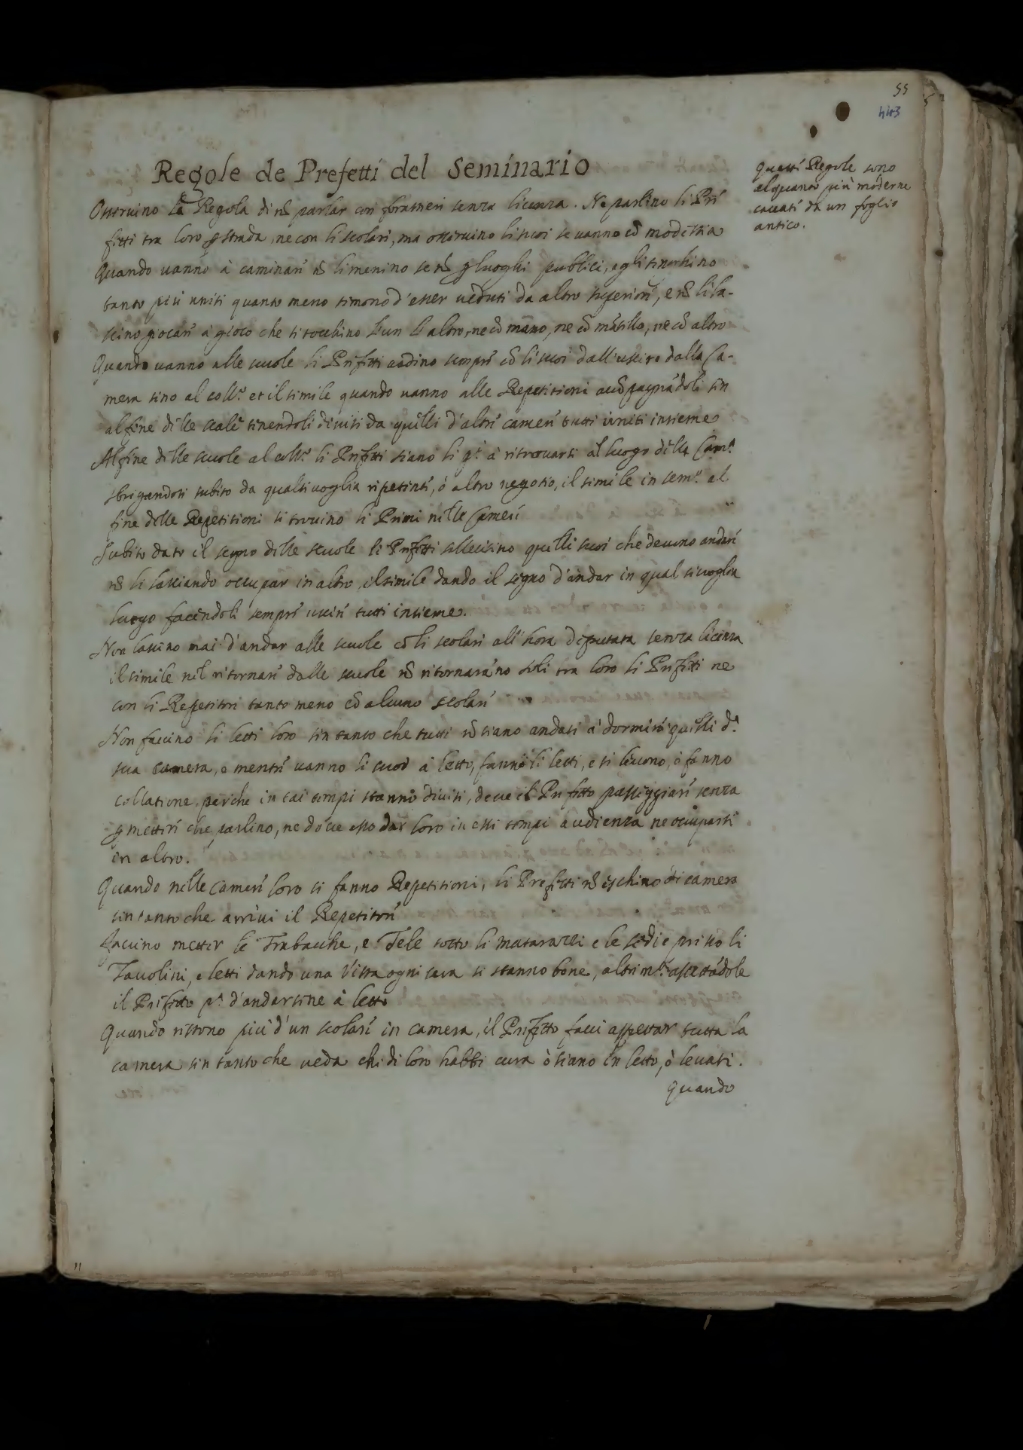 55
443
Regole de Prefetti del Seminario
Questi Regole sono
alquanto più moderne
cavati da un foglio
antico.
Osservino la Regola di nõ parlar con forastieri senza licenza. Ne parlino li Pri
fetti tra loro p strada, ne con li scolari, ma osservino li suoi se vanno cõ modestia
Quando vanno à caminari nõ li menino se nõ p luoghi publici, e gli tenghino
tanto più uniti quanto meno timono d'esser veduti da altro superiori, e nõ li la-
scino giocari a gioco che si tocchino l'un l'altro, ne cõ mano, ne cõ altro
Quando vanno alle scuole li Prifetti vadino sempri cõ li suoi dall'uscire dalla Ca-
mera sino al coll.º et il simile quando vanno alle Repetitioni accõpagnãdoli sin
al fine delle scale tinendoli divisi da quilli d'altri cameri tutti uniti insieme
Al fine delle scuole al coll.º li Prifetti siano li p.i à ritrovarsi al luogo delle Cam.e
sbrigandosi subito da qualsivoglia ripetinti, ò altro negotio, il simile in sem.º al
fine delle Repetitioni si trovino li Primi nille Cameri
Subito dato il segno dille scuole li Prifetti sollecitino quilli suoi che devono andari
nõ li lassando occupar in altro, il simile dando il segno d'andar in qual si voglia
luogo facendoli sempri uscir tutti insieme.
Non lassino mai d'andar alle scuole cõ li scolari all'hora deputata senza licenza
il simile nel ritornari dalle scuole nõ ritornarãno soli tra loro li Prifetti ne
con li Repetitori tanto meno cõ alcuno scolari
Non faccino li letti loro sin tanto che tutti nõ siano andati à dormiri quilli d.ª
sua camera, o mentri vanno li suoi à letto, fanno li letti, e si levono, ò fanno
collatione, perche in tai tempi stanno divisi, deve il Prifetto passiggiari senza
p mettiri che parlino, ne deve esso dar loro in essi tempi audienza ne occuparsi
in altro.
Quando nille cameri loro si fanno Repetitioni, li Prefetti nõ eschino di camera
sin tanto che arrivi il Repetitori
Faccino metter le Trabacche, e Tele sotto li matarazzi e le sedie prisso li
Tavolini, e letti dando una vista ogni sera si stanno bene, altrim.te assettãdole
il Prifetto p.ª d'andarsene à letto
Quando ristono più d'un scolari in camera, il Prifetto facci aspettar tutta la
camera sin tanto che veda chi di loro habbi cura ò siano in letto, ò levati.
Quando